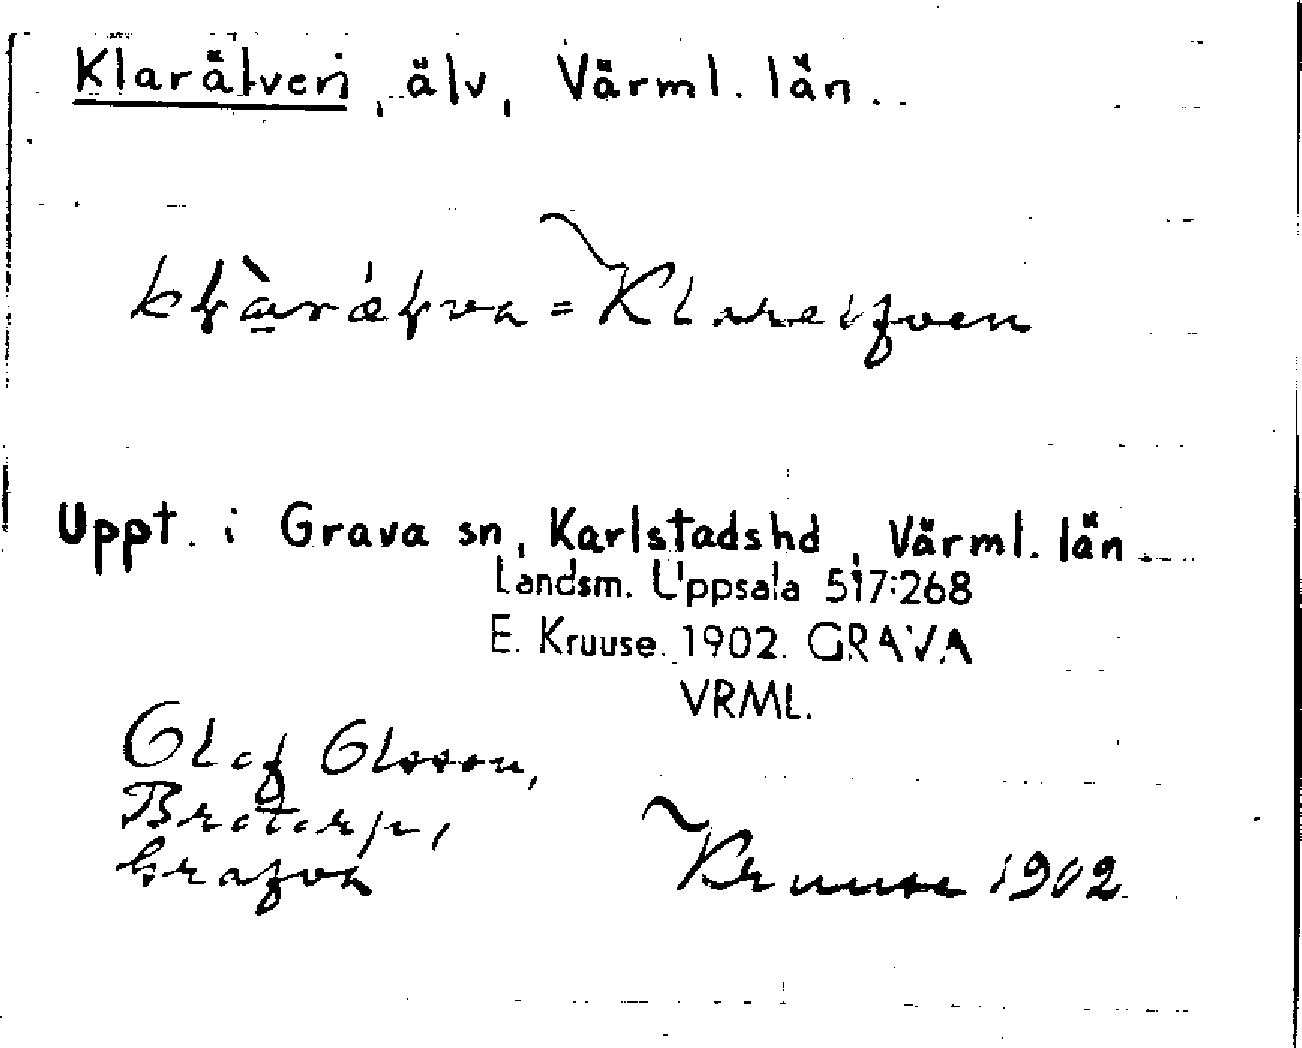 Klarälven, älv, Värml. län.
kɽàrǽɽva = Klarelfven
Uppt. i Grava sn, Karlstads hd, Värml. län.
Landsm. Uppsala 517:268
E. Kruuse. 1902. GRAVA
VRML.
Olof Olsson,
Brotorp,
Grafva
Kruuse 1902.